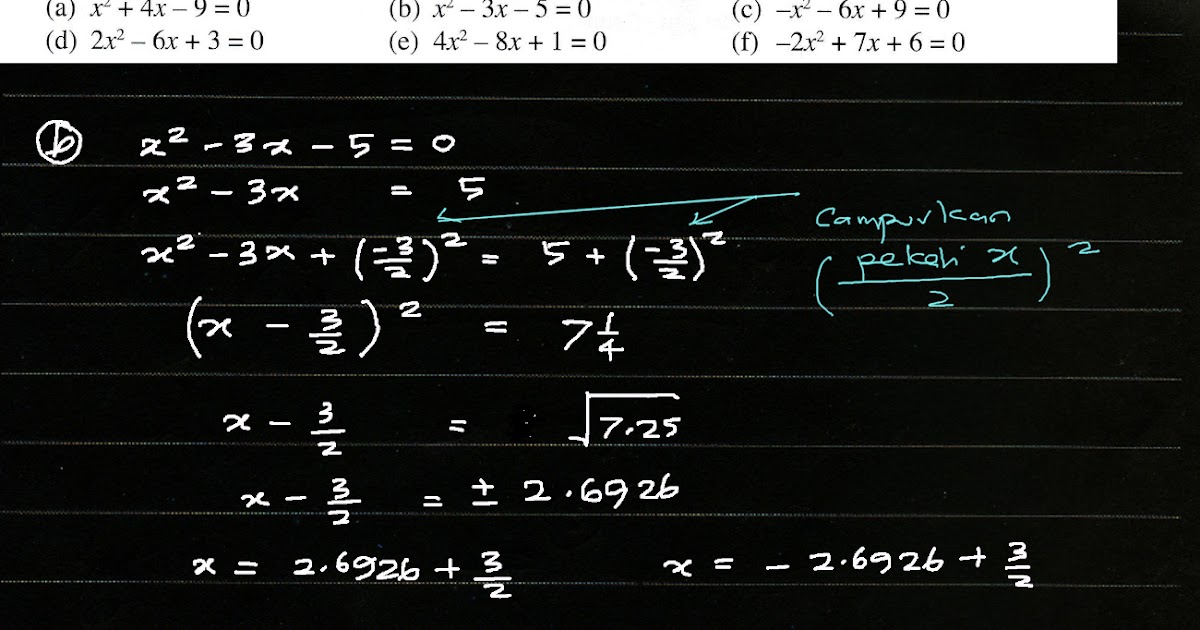 (a) x² + 4x – 9 = 0 (b) x² – 3x – 5 = 0 (c) –x² – 6x + 9 = 0
(d) 2x² – 6x + 3 = 0 (e) 4x² – 8x + 1 = 0 (f) –2x² + 7x + 6 = 0
(b) x² - 3x - 5 = 0
x² - 3x = 5
x² - 3x + (-3/2)² = 5 + (-3/2)²
Campurkan
(pekali x / 2)²
(x - 3/2)² = 7 1/4
x - 3/2 = √7.25
x - 3/2 = ± 2.6926
x = 2.6926 + 3/2 x = - 2.6926 + 3/2